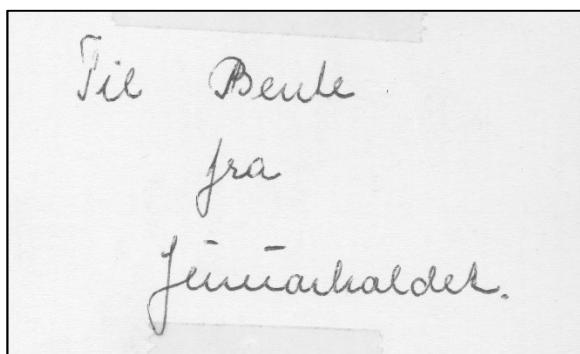 Til Bente
fra
Januarholdet.